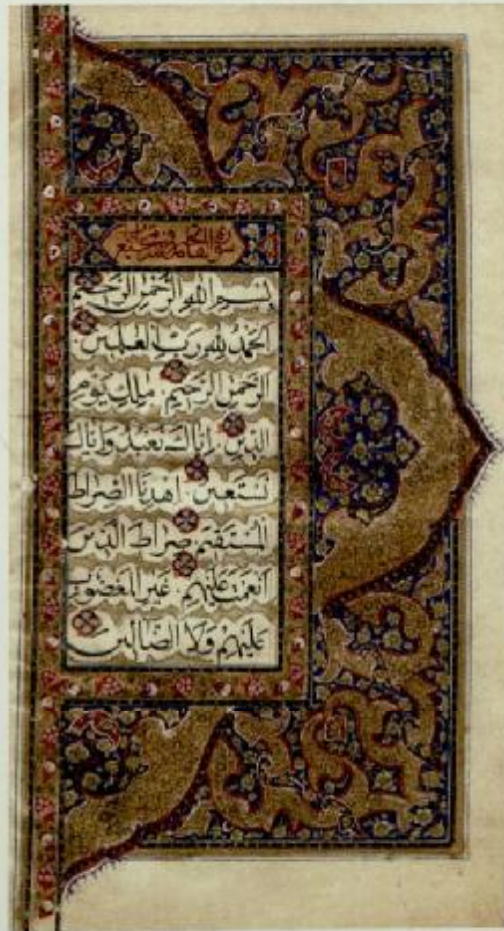 بِسْمِ اللهِ الرَّحْمٰنِ الرَّحِيمِ
الحَمْدُ لِلّٰهِ رَبِّ العٰلَمِينَ
الرَّحْمٰنِ الرَّحِيمِ مٰلِكِ يَوْمِ
الدِّينِ إِيَّاكَ نَعْبُدُ وَإِيَّاكَ
نَسْتَعِينُ اهْدِنَا الصِّرَاطَ
المُسْتَقِيمَ صِرَاطَ الَّذِينَ
أَنْعَمْتَ عَلَيْهِمْ غَيْرِ المَغْضُوبِ
عَلَيْهِمْ وَلَا الضَّالِّينَ